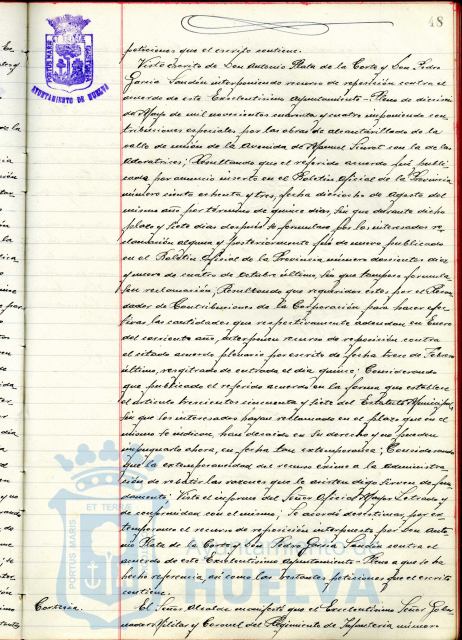 48
PORTUS MARIS ET TERRE CUSTODIA
AYUNTAMIENTO DE HUELVA
peticiones que el escrito contiene.
Visto escrito de Don Antonio Plata de la Corte y Don Pedro
García Landín interponiendo recurso de reposición contra el
acuerdo de este Excelentísimo Ayuntamiento-Pleno de dieciocho
de Mayo de mil novecientos cuarenta y cuatro imponiendo con-
tribuciones especiales por las obras de alcantarillado de la
calle de unión de la Avenida de Manuel Siurot con la de las
Adoratrices; Resultando que el referido acuerdo fué publi-
cado por anuncio inserto en el Boletín Oficial de la Provincia
número ciento ochenta y tres, fecha dieciocho de Agosto del
mismo año por término de quince días, sin que durante dicho
plazo y siete días después se formulara por los interesados re-
clamación alguna y posteriormente fué de nuevo publicado
en el Boletín Oficial de la Provincia número doscientos diez
y nueve de cuatro de Octubre último, sin que tampoco formula-
sen reclamación; Resultando que requeridos estos por el Recau-
dador de Contribuciones de la Corporación para hacer efec-
tivas las cantidades que respectivamente adeudan en Enero
del corriente año, interponen recurso de reposición contra
el citado acuerdo plenario por escrito de fecha trece de Febrero
último, registrado de entrada el día quince; Considerando
que publicado el referido acuerdo en la forma que establece
el artículo trescientos cincuenta y siete del Estatuto Municipal
sin que los interesados hayan reclamado en el plazo que en el
mismo se indica, han decaído en su derecho y no pueden
impugnarlo ahora, en fecha tan extemporanea; Considerando
que la extemporaneidad del recurso exime a la Administra-
ción de rebatir las razones que le asisten digo sirven de fun-
damento; Visto el informe del Señor Oficial Mayor Letrado y
de conformidad con el mismo; Se acordó desestimar, por ex-
temporaneo el recurso de reposición interpuesto por Don Anto-
nio Plata de la Corte y Don Pedro García Landín contra el
acuerdo de este Excelentísimo Ayuntamiento-Pleno a que se ha
hecho referencia, así como las restantes peticiones que el escrito
contiene.
Cortesía. El Señor Alcalde manifestó que el Excelentísimo Señor Gober-
nador Militar y Coronel del Regimiento de Infantería número
PORTUS MARIS ET TERRE
Ayuntamiento de
HUELVA